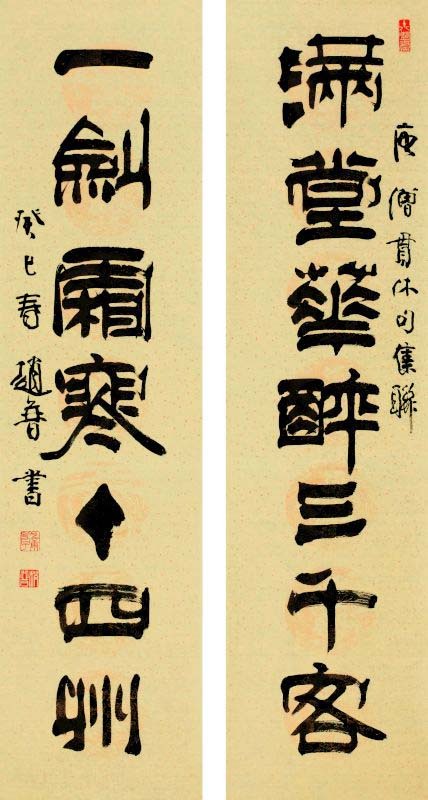 唐僧貫休句集聯
滿堂華醉三千客
一劍霜寒十四州
癸巳春 趙普書